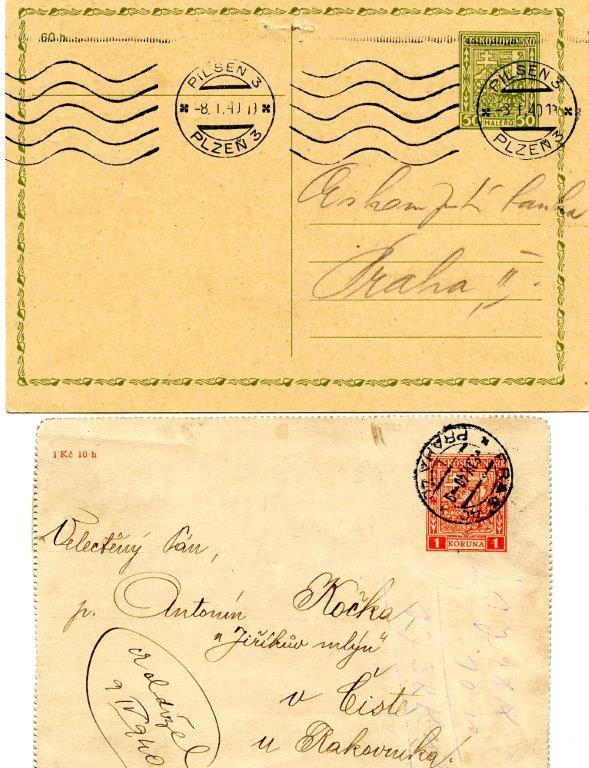 60 h
ČESKOSLOVENSKO
50 HALÉŘŮ 50
PILSEN 3
-8. I. 40
PLZEŇ 3
PILSEN 3
-8. I. 40
PLZEŇ 3
banka
Praha II.
1 Kč 10 h
PRAHA
ČESKOSLOVENSKO
1 KORUNA 1
Velectěný Pán,
p. Antonín Kočka,
"Jiříkův mlýn"
v Čisté
u Rakovníka!